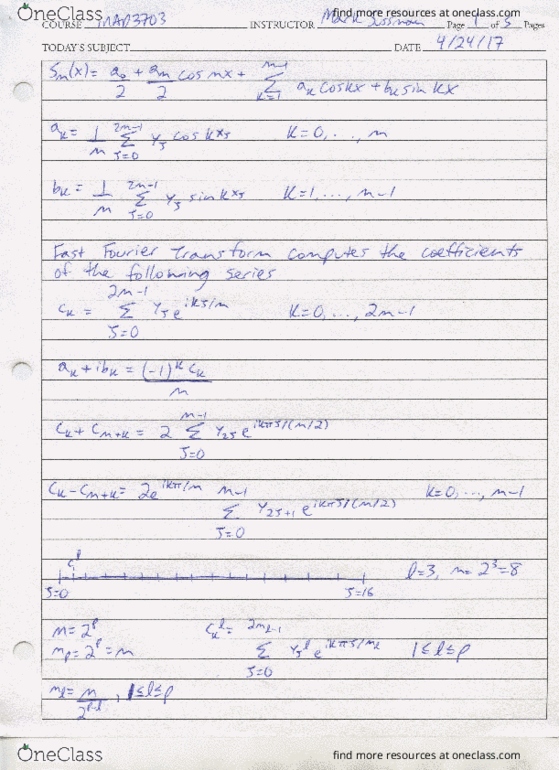 OneClass find more resources at oneclass.com
COURSE MAD3703 INSTRUCTOR Mark Sussman Page 1 of 5 Pages
TODAY'S SUBJECT DATE 4/24/17
Sₘ(x) = a₀/2 + aₘ/2 cos mx + Σ_{k=1}^{m-1} aₖ cos kx + bₖ sin kx
aₖ = 1/m Σ_{J=0}^{2m-1} y_J cos k x_J K=0,..., m
bₖ = 1/m Σ_{J=0}^{2m-1} y_J sin k x_J K=1,..., m-1
Fast Fourier Transform computes the coefficients
of the following series
cₖ = Σ_{J=0}^{2m-1} y_J e^{ikJ/m} K=0,..., 2m-1
aₖ + ibₖ = (-1)^k cₖ / m
cₖ + c_{m+k} = 2 Σ_{J=0}^{m-1} y_{2J} e^{ikπJ/(m/2)}
cₖ - c_{m+k} = 2e^{ikπ/m} Σ_{J=0}^{m-1} y_{2J+1} e^{ikπJ/(m/2)} k=0,..., m-1
J=0 J=16 l=3, m=2³=8
cₖ^l = Σ_{J=0}^{2m_l-1} y_J^l e^{ikπJ/m_l} 1≤l≤p
m_p=2^p=m
m_l = m/2^{p-l}, 1≤l≤p
OneClass find more resources at oneclass.com